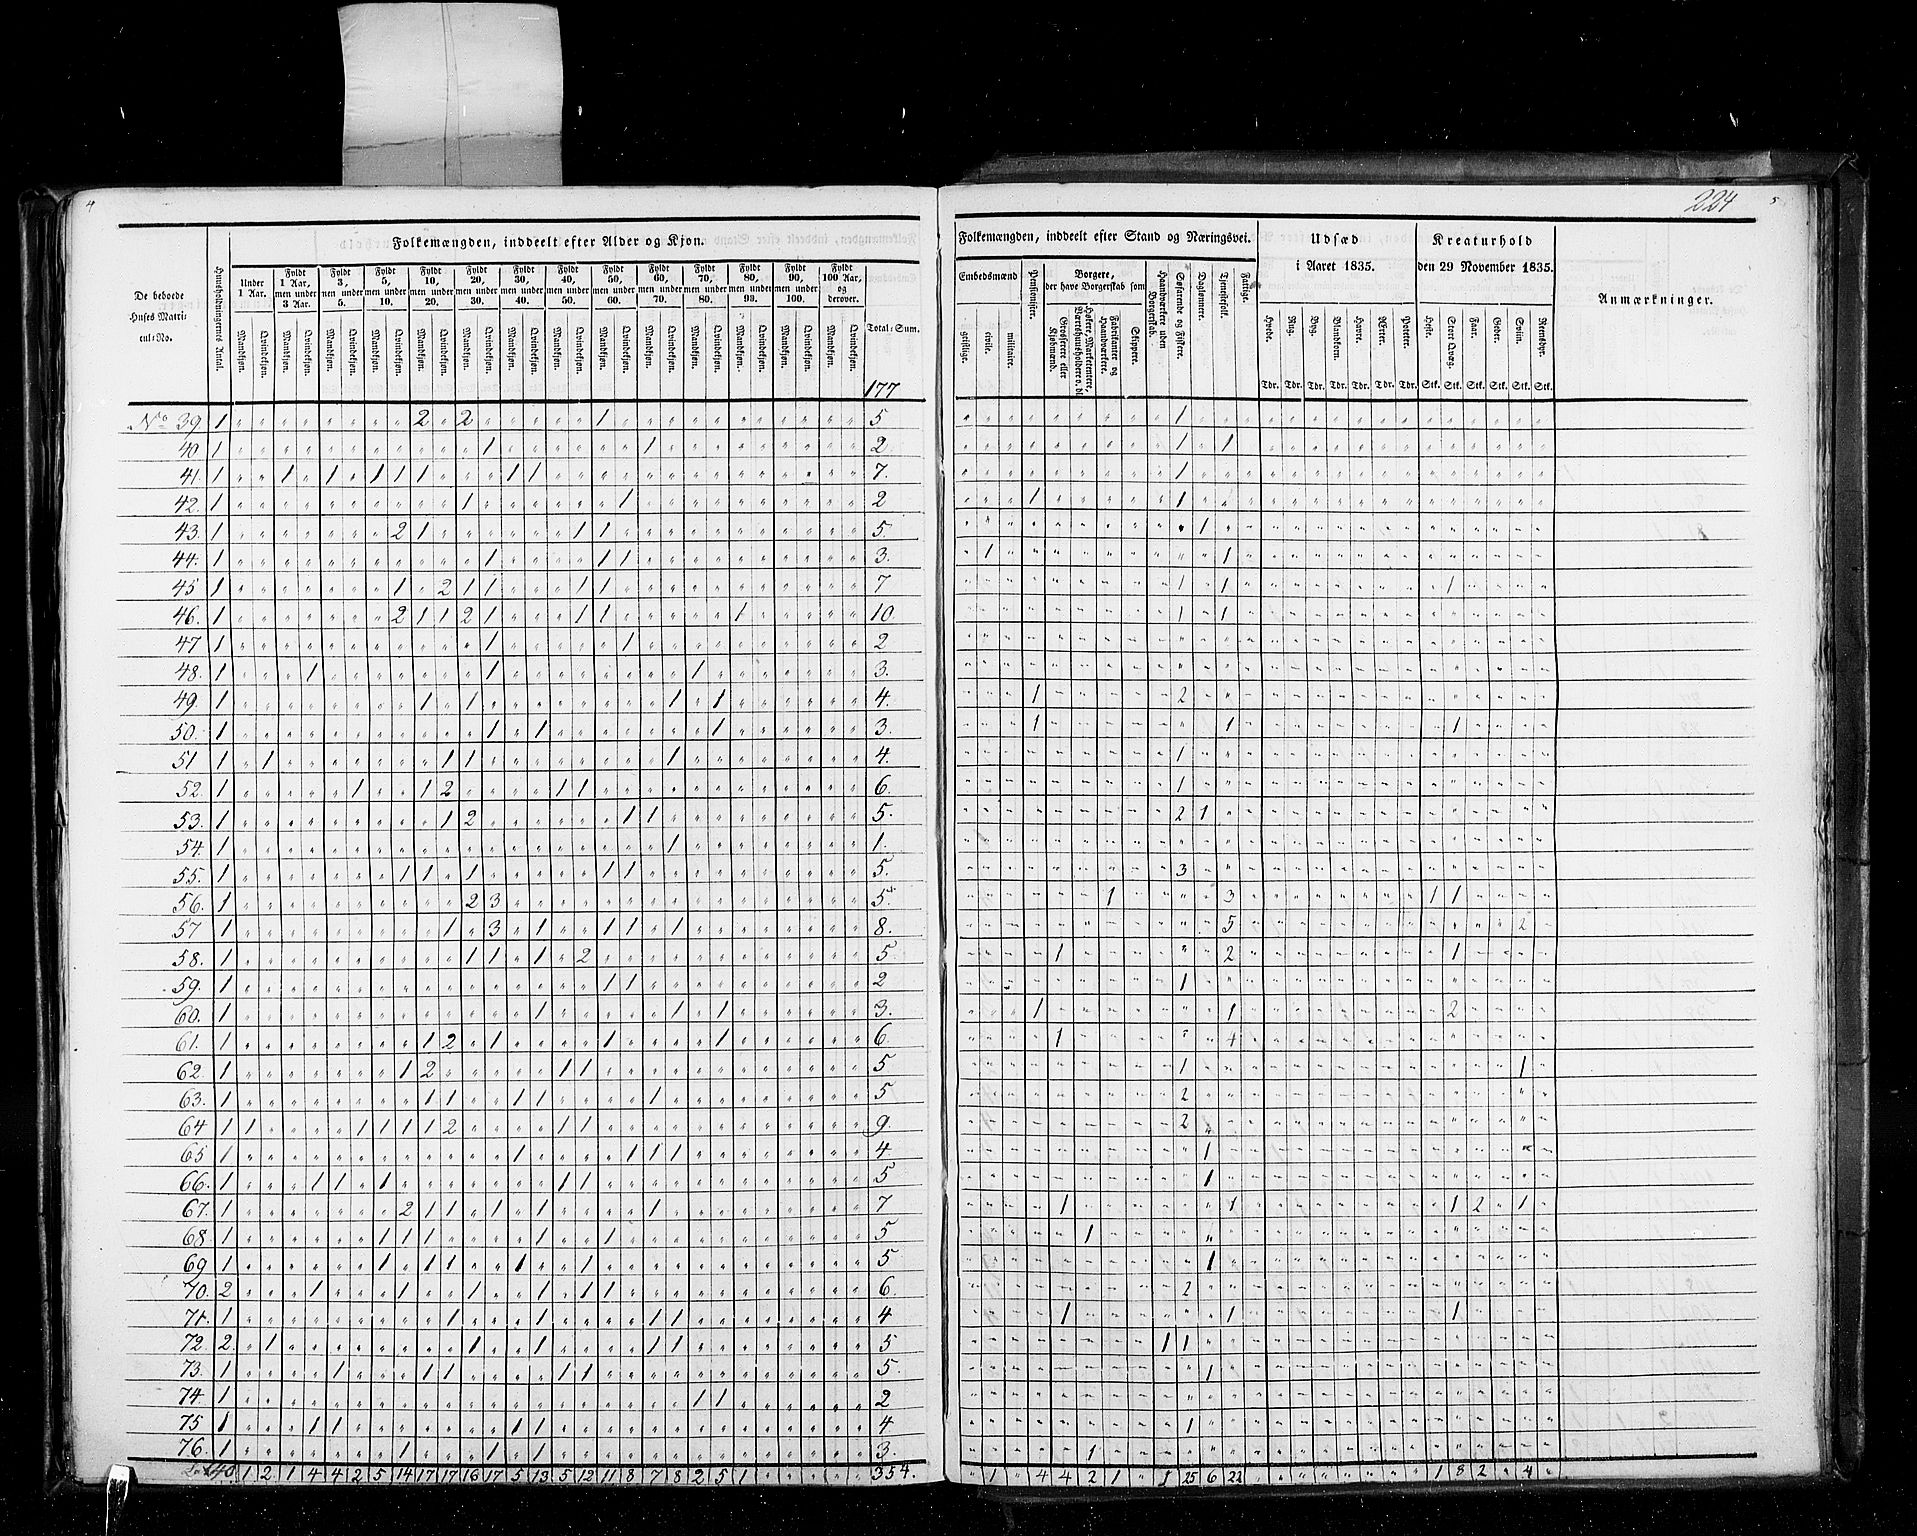 4
224 5
Folkemængden, inddeelt efter Alder og Kjøn.
De beboede Huses Matricul-No.
Huusholdningernes Antal.
Under 1 Aar.
Fyldt 1 Aar, men under 3 Aar.
Fyldt 3, men under 5.
Fyldt 5, men under 10.
Fyldt 10, men under 20.
Fyldt 20, men under 30.
Fyldt 30, men under 40.
Fyldt 40, men under 50.
Fyldt 50, men under 60.
Fyldt 60, men under 70.
Fyldt 70, men under 80.
Fyldt 80, men under 90.
Fyldt 90, men under 100.
Fyldt 100 Aar, og derover.
Mandkjøn. Qvindekjøn.
Total-Sum.
177
Folkemængden, inddeelt efter Stand og Næringsvei.
Embedsmænd
geistlige. civile. militaire.
Pensionister.
Borgere, der have Borgerskab som
Grosserere eller Kjøbmænd.
Høkere, Marketentere, Værtshuusholdere o. dl.
Fabrikanter og Haandværkere.
Skippere.
Haandværkere uden Borgerskab.
Søfarende og Fiskere.
Daglønnere.
Tjenestefolk.
Fattige.
Udsæd i Aaret 1835.
Hvede. Rug. Byg. Blandkorn. Havre. Ærter. Poteter.
Tdr. Tdr. Tdr. Tdr. Tdr. Tdr. Tdr.
Kreaturhold den 29 November 1835.
Heste. Stort Qvæg. Faar. Geder. Sviin. Reensdyr.
Stk. Stk. Stk. Stk. Stk. Stk.
Anmærkninger.
No 39 1 2 2 1 5 1
40 1 1 1 2 1 1
41. 1 1 1 1 1 1 1 1 7. 1
42. 1 1 1 2 1 1
43. 1 2 1 1 1 5. 1
44. 1 1 1 1 3. 1 1
45 1 1 2 1 1 1 1 7 1 1 1
46. 1 2 1 1 2 1 1 1 1 10. 1 1
47 1 1 1 2
48. 1 1 1 1 3.
49. 1 1 1 1 1 4. 1 2
50. 1 1 1 1 3. 1 1 1
51 1 1 1 1 1 4. 1
52. 1 1 1 2 1 1 6. 1
53. 1 1 2 1 1 5. 2 1
54. 1 1 1.
55. 1 1 1 1 1 1 5. 3
56. 1 2 3 5. 1 3 1 1
57 1 1 3 1 1 1 1 8. 5 2
58. 1 1 1 1 2 5 1 2 1
59. 1 1 1 2 1
60. 1 1 1 1 3. 1 1 2
61. 1 1 2 1 1 1 6. 1 4
62. 1 1 2 1 1 5 1 1
63. 1 1 1 1 1 1 5 2
64 1 1 1 1 1 1 2 1 1 9. 2
65 1 1 1 1 1 4 1
66. 1 1 1 1 1 1 5 1
67. 1 2 1 1 1 1 1 7 1 1 1 2 1
68. 1 1 1 1 1 1 5 1
69 1 1 1 1 1 1 5 1
70. 2 1 1 1 1 1 1 6. 2
71. 1 1 1 1 1 4 1 1 1
72. 2. 1 1 1 1 1 5 1 1
73. 1 1 1 1 1 1 5. 1
74. 1 1 1 2
75 1 1 1 1 1 4 1
76. 1 1 1 1 3. 1
40. 1 2 1 4 4 2 5 14 17 17 16 17 5 13 5 12 11 8 7 8 2 5 1 354. 1 4 4 2 1 1 25 6 22 1 8 2 4